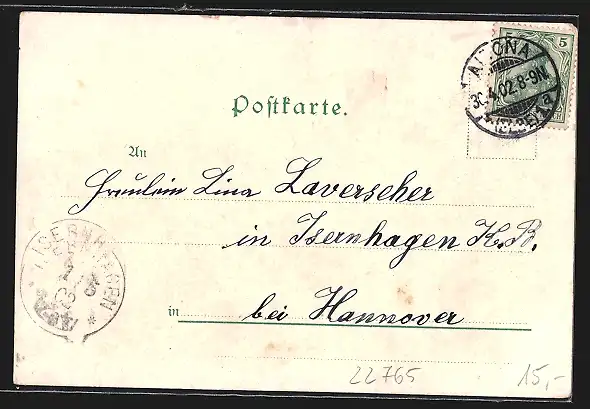 5 5
ALTONA
30.4.02.8-9N.
(ELBE) 1 a
Postkarte.
An
Fräulein Lina Laverscher
in Isernhagen K.B.
ISERNHAGEN
in bei Hannover
22765
15,-